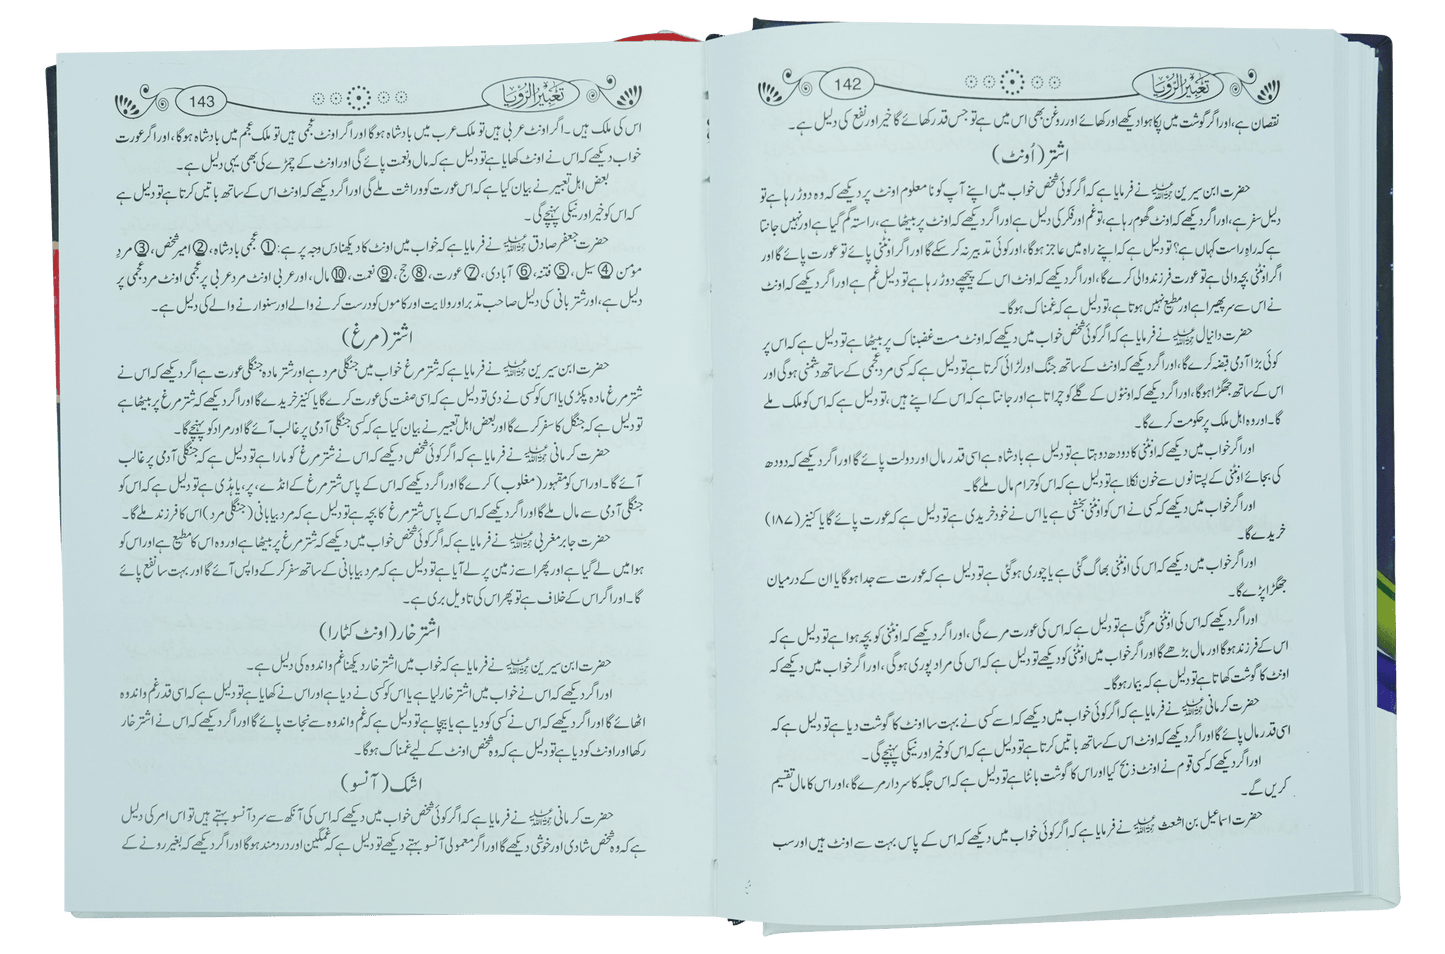 142
تعبیر الرؤیا
نقصان ہے، اور اگر گوشت میں پکا ہوا دیکھے اور کھائے اور روغن بھی اس میں ہے تو جس قدر کھائے گا خیر اور نفع کی دلیل ہے۔
اشتر (اُونٹ)
حضرت ابن سیرین رحمۃ اللہ علیہ نے فرمایا ہے کہ اگر کوئی شخص خواب میں اپنے آپ کو نا معلوم اونٹ پر دیکھے کہ وہ دوڑ رہا ہے تو
دلیل سفر ہے، اور اگر دیکھے کہ اونٹ گھوم رہا ہے، تو غم اور فکر کی دلیل ہے اور اگر دیکھے کہ اونٹ پر بیٹھا ہے، راستہ گم گیا ہے اور نہیں جانتا
ہے کہ راہِ راست کہاں ہے؟ تو دلیل ہے کہ اپنے راہ میں عاجز ہوگا، اور کوئی تدبیر نہ کر سکے گا اور اگر اونٹنی پائے تو عورت پائے گا اور
اگر اونٹنی بچہ والی ہے تو عورت فرزند والی کرے گا، اور اگر دیکھے کہ اونٹ اس کے پیچھے دوڑ رہا ہے تو دلیل غم ہے اور اگر دیکھے کہ اونٹ
نے اس سے سر پھیرا ہے اور مطیع نہیں ہوتا ہے، تو دلیل ہے کہ غمناک ہوگا۔
حضرت دانیال علیہ السلام نے فرمایا ہے کہ اگر کوئی شخص خواب میں دیکھے کہ اونٹ مست غضبناک پر بیٹھا ہے تو دلیل ہے کہ اس پر
کوئی بڑا آدمی قبضہ کرے گا، اور اگر دیکھے کہ اونٹ کے ساتھ جنگ اور لڑائی کرتا ہے تو دلیل ہے کہ کسی مرد عجمی کے ساتھ دشمنی ہوگی اور
اس کے ساتھ جھگڑا ہوگا، اور اگر دیکھے کہ اونٹوں کے گلے کو چراتا ہے اور جانتا ہے کہ اس کے اپنے ہیں، تو دلیل ہے کہ اس کو ملک ملے
گا۔ اور وہ اہل ملک پر حکومت کرے گا۔
اور اگر خواب میں دیکھے کہ اونٹنی کا دودھ دوہتا ہے تو دلیل ہے بادشاہ ہے اسی قدر مال اور دولت پائے گا اور اگر دیکھے کہ دودھ
کی بجائے اونٹنی کے پستانوں سے خون نکلا ہے تو دلیل ہے کہ اس کو حرام مال ملے گا۔
اور اگر خواب میں دیکھے کہ کسی نے اس کو اونٹنی بخشی ہے یا اس نے خود خریدی ہے تو دلیل ہے کہ عورت پائے گا یا کنیز (۱۸۷)
خریدے گا۔
اور اگر خواب میں دیکھے کہ اس کی اونٹنی بھاگ گئی ہے یا چوری ہوگئی ہے تو دلیل ہے کہ عورت سے جدا ہوگا یا ان کے درمیان
جھگڑا پڑے گا۔
اور اگر دیکھے کہ اس کی اونٹنی مر گئی ہے تو دلیل ہے کہ اس کی عورت مرے گی، اور اگر دیکھے کہ اونٹنی کو بچہ ہوا ہے تو دلیل ہے کہ
اس کے فرزند ہوگا اور مال بڑھے گا اور اگر خواب میں اونٹنی کو دیکھے تو دلیل ہے کہ اس کی مراد پوری ہوگی، اور اگر خواب میں دیکھے کہ
اونٹ کا گوشت کھاتا ہے تو دلیل ہے کہ بیمار ہوگا۔
حضرت کرمانی رحمۃ اللہ علیہ نے فرمایا ہے کہ اگر کوئی خواب میں دیکھے کہ اسے کسی نے بہت سا اونٹ کا گوشت دیا ہے تو دلیل ہے کہ
اسی قدر مال پائے گا اور اگر دیکھے کہ اونٹ اس کے ساتھ باتیں کرتا ہے تو دلیل ہے کہ اس کو خیر اور نیکی پہنچے گی۔
اور اگر دیکھے کہ کسی قوم نے اونٹ ذبح کیا اور اس کا گوشت بانٹا ہے تو دلیل ہے کہ اس جگہ کا سردار مرے گا، اور اس کا مال تقسیم
کریں گے۔
حضرت اسماعیل بن اشعث رحمۃ اللہ علیہ نے فرمایا ہے کہ اگر کوئی خواب میں دیکھے کہ اس کے پاس بہت سے اونٹ ہیں اور سب
143
تعبیر الرؤیا
اس کی ملک ہیں۔ اگر اونٹ عربی ہیں تو ملک عرب میں بادشاہ ہوگا اور اگر اونٹ عجمی ہیں تو ملک عجم میں بادشاہ ہوگا، اور اگر عورت
خواب دیکھے کہ اس نے اونٹ کھایا ہے تو دلیل ہے کہ مال و نعمت پائے گی اور اونٹ کے چمڑے کی بھی یہی دلیل ہے۔
بعض اہل تعبیر نے بیان کیا ہے کہ اس عورت کو وراثت ملے گی اور اگر دیکھے کہ اونٹ اس کے ساتھ باتیں کرتا ہے تو دلیل ہے
کہ اس کو خیر اور نیکی پہنچے گی۔
حضرت جعفر صادق رحمۃ اللہ علیہ نے فرمایا ہے کہ خواب میں اونٹ کا دیکھنا دس وجہ پر ہے: ① عجمی بادشاہ، ② امیر شخص، ③ مرد
مومن ④ سیل، ⑤ فتنہ، ⑥ آبادی، ⑦ عورت، ⑧ حج، ⑨ نعمت، ⑩ مال، اور عربی اونٹ مرد عربی پر عجمی اونٹ مرد عجمی پر
دلیل ہے، اور شتر بانی کی دلیل صاحب تدبر اور ولایت اور کاموں کو درست کرنے والے اور سنوارنے والے کی دلیل ہے۔
اشتر (مرغ)
حضرت ابن سیرین رحمۃ اللہ علیہ نے فرمایا ہے کہ شتر مرغ خواب میں جنگلی مرد ہے اور شتر مادہ جنگلی عورت ہے اگر دیکھے کہ اس نے
شتر مرغ مادہ پکڑی یا اس کو کسی نے دی تو دلیل ہے کہ اسی صفت کی عورت کرے گا یا کنیز خریدے گا اور اگر دیکھے کہ شتر مرغ پر بیٹھا ہے
تو دلیل ہے کہ جنگل کا سفر کرے گا اور بعض اہل تعبیر نے بیان کیا ہے کہ کسی جنگلی آدمی پر غالب آئے گا اور مراد کو پہنچے گا۔
حضرت کرمانی رحمۃ اللہ علیہ نے فرمایا ہے کہ اگر کوئی شخص دیکھے کہ اس نے شتر مرغ کو مارا ہے تو دلیل ہے کہ جنگلی آدمی پر غالب
آئے گا۔ اور اس کو مقہور (مغلوب) کرے گا اور اگر دیکھے کہ اس کے پاس شتر مرغ کے انڈے، پر، یا ہڈی ہے تو دلیل ہے کہ اس کو
جنگلی آدمی سے مال ملے گا اور اگر دیکھے کہ اس کے پاس شتر مرغ کا بچہ ہے تو دلیل ہے کہ مرد بیابانی (جنگلی مرد) اس کا فرزند ملے گا۔
حضرت جابر مغربی رحمۃ اللہ علیہ نے فرمایا ہے کہ اگر کوئی شخص خواب میں دیکھے کہ شتر مرغ پر بیٹھا ہے اور وہ اس کا مطیع ہے اور اس کو
ہوا میں لے گیا ہے اور پھر اسے زمین پر لے آیا ہے تو دلیل ہے کہ مرد بیابانی کے ساتھ سفر کر کے واپس آئے گا اور بہت سا نفع پائے
گا۔ اور اگر اس کے خلاف ہے تو پھر اس کی تاویل بری ہے۔
اشتر خار (اونٹ کٹارا)
حضرت ابن سیرین رحمۃ اللہ علیہ نے فرمایا ہے کہ خواب میں اشتر خار دیکھنا غم و اندوہ کی دلیل ہے۔
اور اگر دیکھے کہ اس نے خواب میں اشتر خار لیا ہے یا اس کو کسی نے دیا ہے اور اس نے کھایا ہے تو دلیل ہے کہ اسی قدر غم و اندوہ
اٹھائے گا اور اگر دیکھے کہ اس نے کسی کو دیا ہے یا بیچا ہے تو دلیل ہے کہ غم و اندوہ سے نجات پائے گا اور اگر دیکھے کہ اس نے اشتر خار
رکھا اور اونٹ کو دیا ہے تو دلیل ہے کہ وہ شخص اونٹ کے لیے غمناک ہوگا۔
اشک (آنسو)
حضرت کرمانی رحمۃ اللہ علیہ نے فرمایا ہے کہ اگر کوئی شخص خواب میں دیکھے کہ اس کی آنکھ سے سرد آنسو بہتے ہیں تو اس امر کی دلیل
ہے کہ وہ شخص شادی اور خوشی دیکھے گا اور اگر معمولی آنسو بہتے دیکھے تو دلیل ہے کہ غمگین اور درد مند ہوگا اور اگر دیکھے کہ بغیر رونے کے